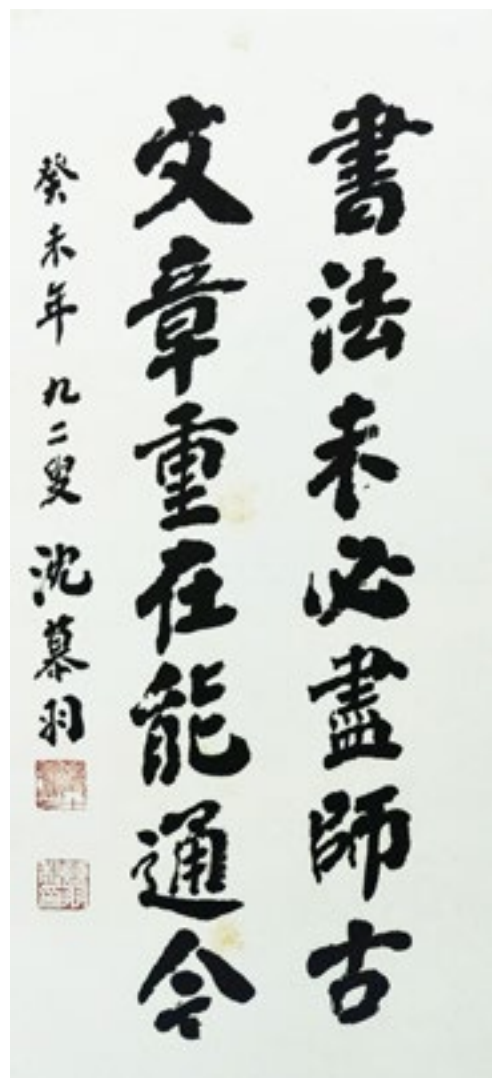 書法未必盡師古
文章重在能通今
癸未年九二叟沈慕羽